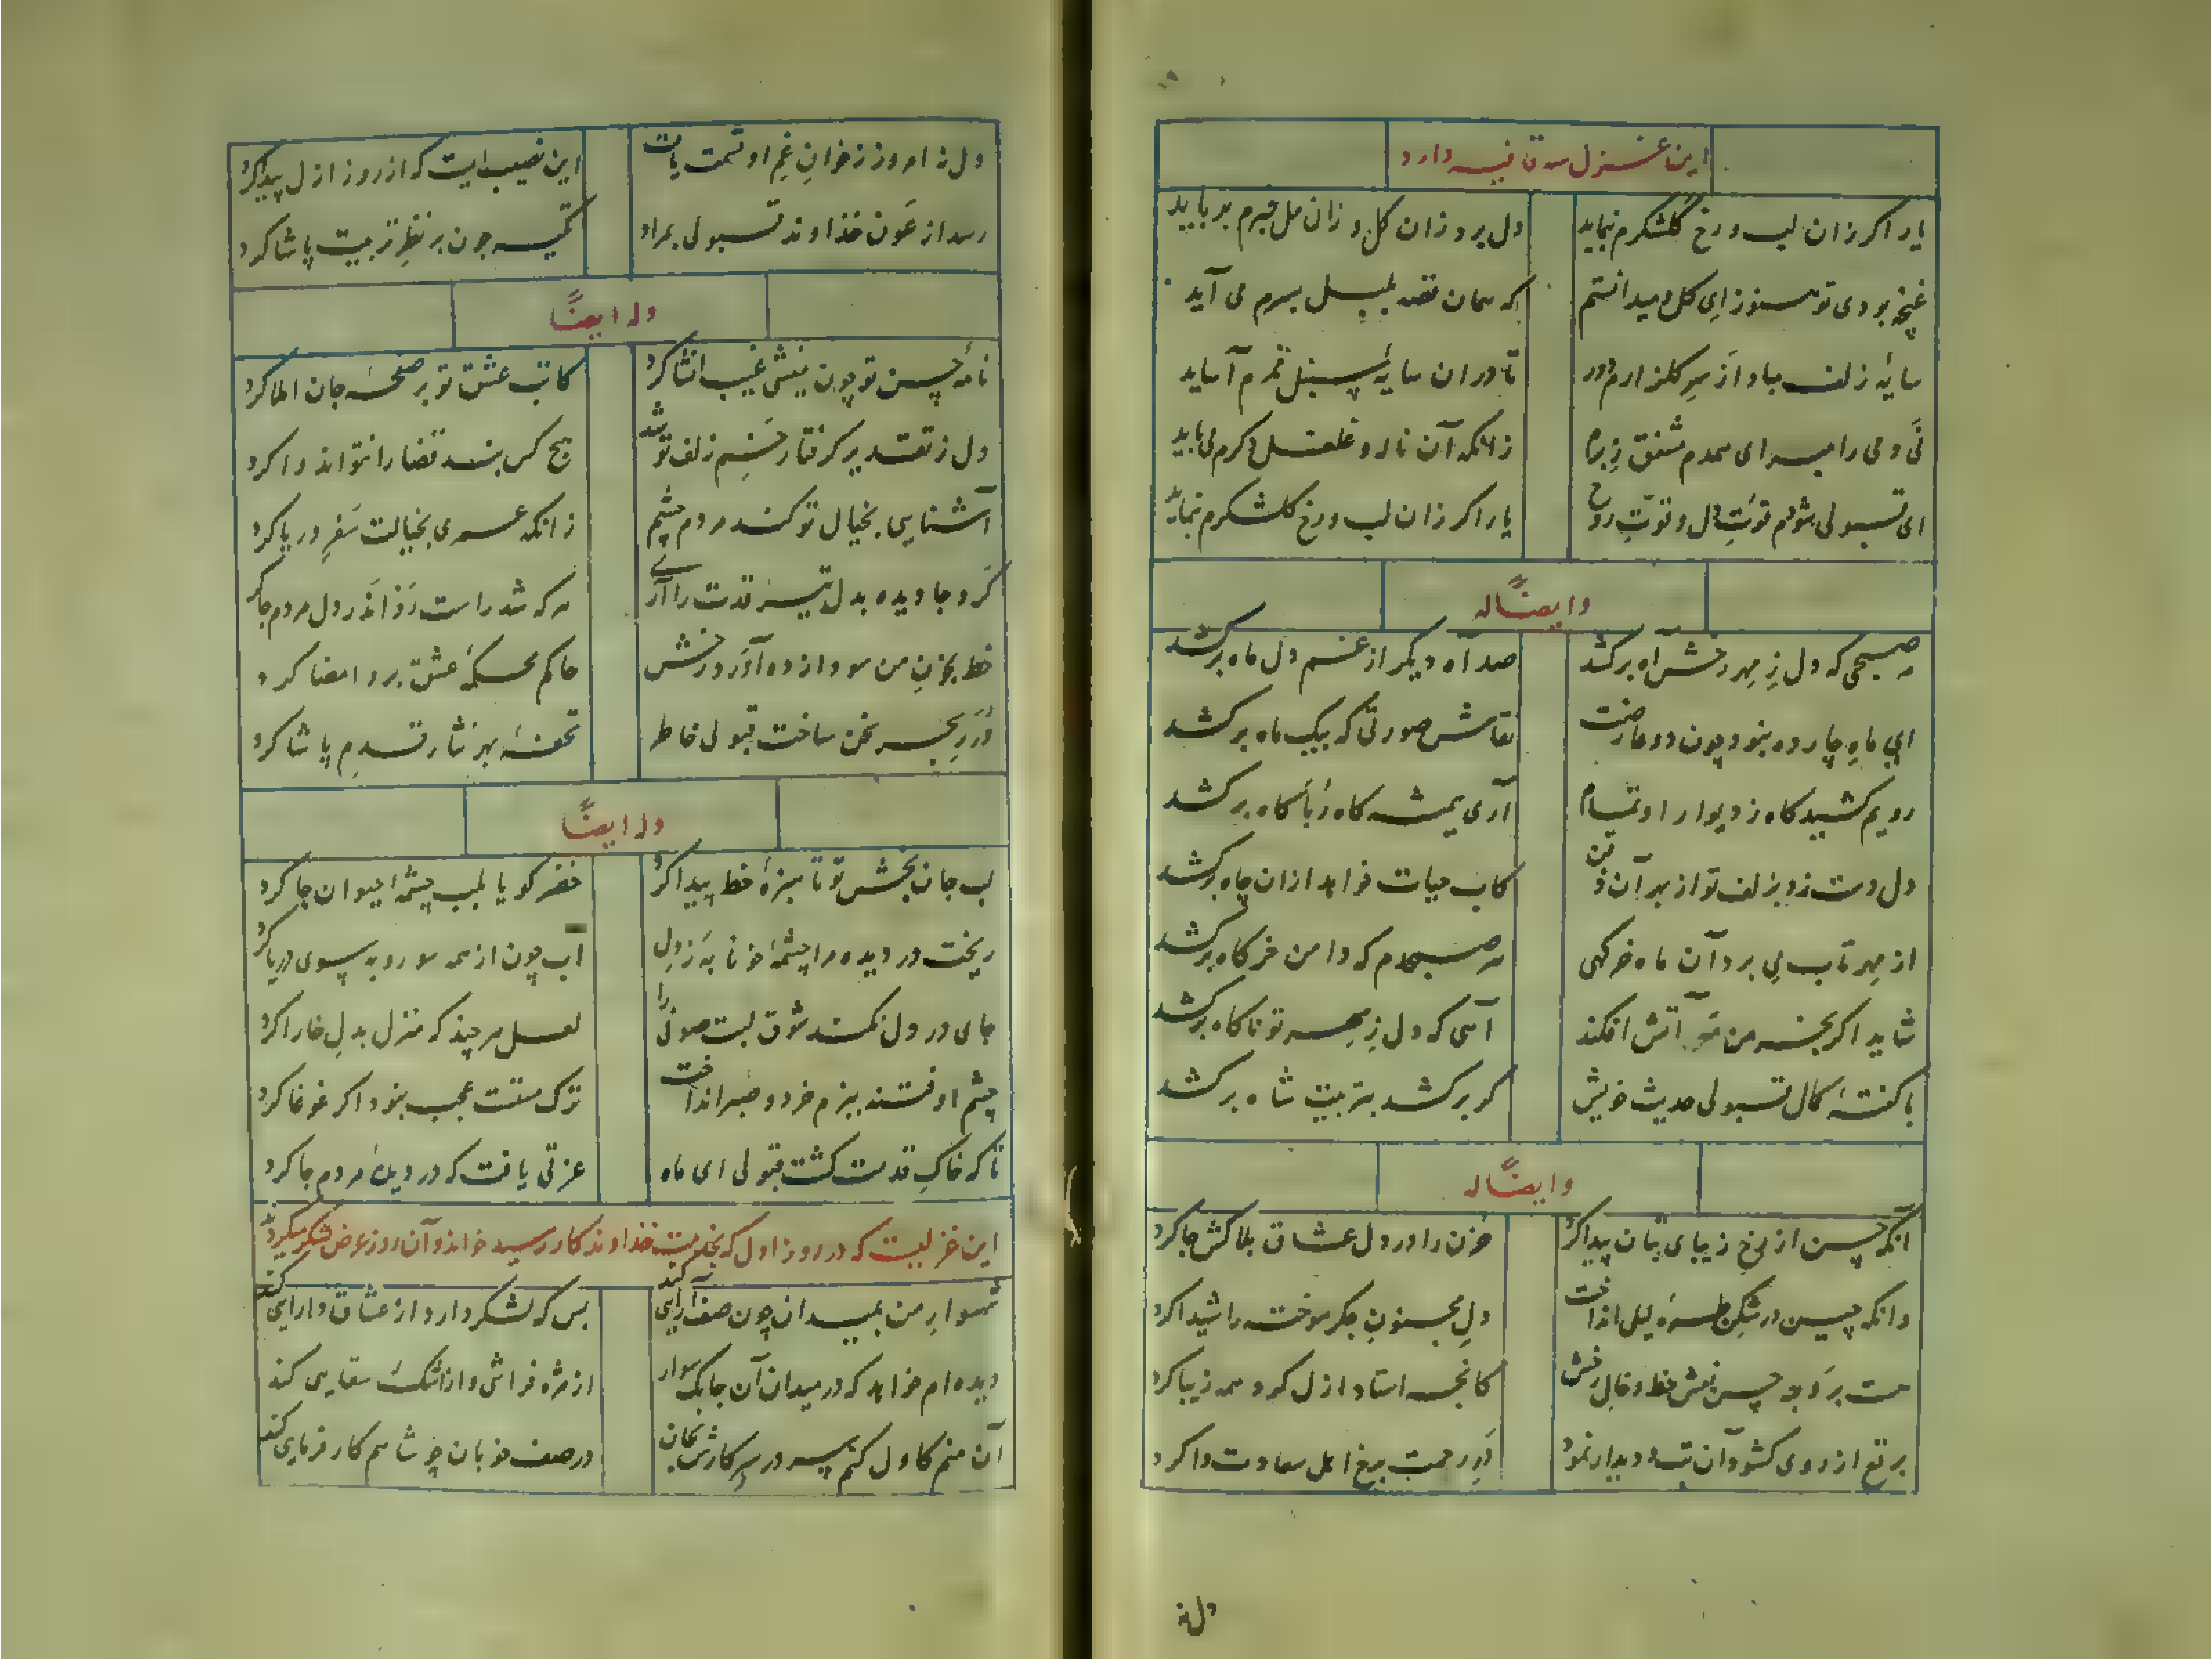 این غزل سه قافیه دارد
یار اگر زان لب و رخ گلشکرم بنماید
دل برد زان گل و زان مل جبرم برباید
غنچه بودی تو هنوز ای گل و میدانستم
که همان قصه بلبل بسرم می آید
سایه زلف مباد از سر گلزارم دور
تا دران سایه سنبل نمرم آساید
نی و می را همه ای همدم مشفق
زانکه آن ناله و غلغل دگرم می باید
ای قبولی شودم قوت دل و قوت روح
یار اگر زان لب و رخ گلشکرم بنماید
وایضاً له
هر صبحی که دل ز مهر رخش آه برکشد
صد آه دیگر از غم دل ماه برکشد
ای ماه چارده نبود چون دو عارضت
نقاش صورتی که بیک ماه برکشد
رویم کشید کاه ز دیوار او تمام
آری همیشه کاه ربا کاه برکشد
دل دست زد بزلف تو از بهر آن ذقن
کاب حیات خواهد ازان چاه برکشد
از مهر تاب می برد آن ماه خرگهی
هر صبحدم که دامن خرگاه برکشد
شاید اگر بخرمن مه آتش افکند
آهی که دل ز مهر تو ناگاه برکشد
با گفته کمال قبولی حدیث خویش
گو برکشد بتربیت شاه برکشد
وایضاً له
آنکه حسن از رخ زیبای بتان پیدا کرد
حزن را در دل عشاق بلاکش جا کرد
وانکه چین در شکن طره لیلی انداخت
دل مجنون جگر سوخته را شیدا کرد
هست بر وجه حسن نقش خط و خال رخش
کانچه استاد ازل کرد همه زیبا کرد
برقع از روی گشود آن مه و دیدار نمود
در رحمت برخ اهل سعادت وا کرد
دل نه
دل نه امروز ز خوان غم او قسمت یافت
این نصیبه ایست که از روز ازل پیدا کرد
رسد از عون خداوند قبولی بمراد
تکیه چون بر نظر تربیت پاشا کرد
وله ایضاً
نامه حسن تو چون منشی غیب انشا کرد
کاتب عشق تو بر صفحه جان املا کرد
دل ز تقدیر گرفتار خم زلف تو شد
هیچ کس بند قضا را نتواند وا کرد
آشنایی بخیال تو کند مردم چشم
زانکه عمری بخیالت سفر دریا کرد
کرد جا دیده بدل تیر قدت را آری
هر که شد راست رو اندر دل مردم جا کرد
خط بخون من سودازده آورد رخش
حاکم محکمه عشق برو امضا کرد
درر بحر سخن ساخت قبولی خاطر
تحفه بهر نثار قدم پاشا کرد
وله ایضاً
لب جان بخش تو تا سبزه خط پیدا کرد
خضر گویا بلب چشمه حیوان جا کرد
ریخت در دیده مرا چشمه خونابه ز دل
آب چون از همه سو رو به سوی دریا کرد
جای در دل نکند شوق لبت صوفی را
لعل هر چند که منزل بدل خارا کرد
چشم او فتنه ببزم خرد و صبر انداخت
ترک مستت عجب نبود اگر غوغا کرد
تا که خاک قدمت گشت قبولی ای ماه
عزتی یافت که در دیده مردم جا کرد
این غزلیست که در روز اول که بخدمت خداوندگار رسید خواند و آن روز عرض لشکر میکردند
شهسوار من بمیدان چون صف آرایی کند
بس که لشکر دارد از عشاق دارایی کند
دیده ام خواهد که در میدان آن چابک سوار
از مژه فراشی و از اشک سقایی کند
آن منم کاول کنم سر در سر کارش بجان
در صف خوبان چو شاهم کارفرمایی کند